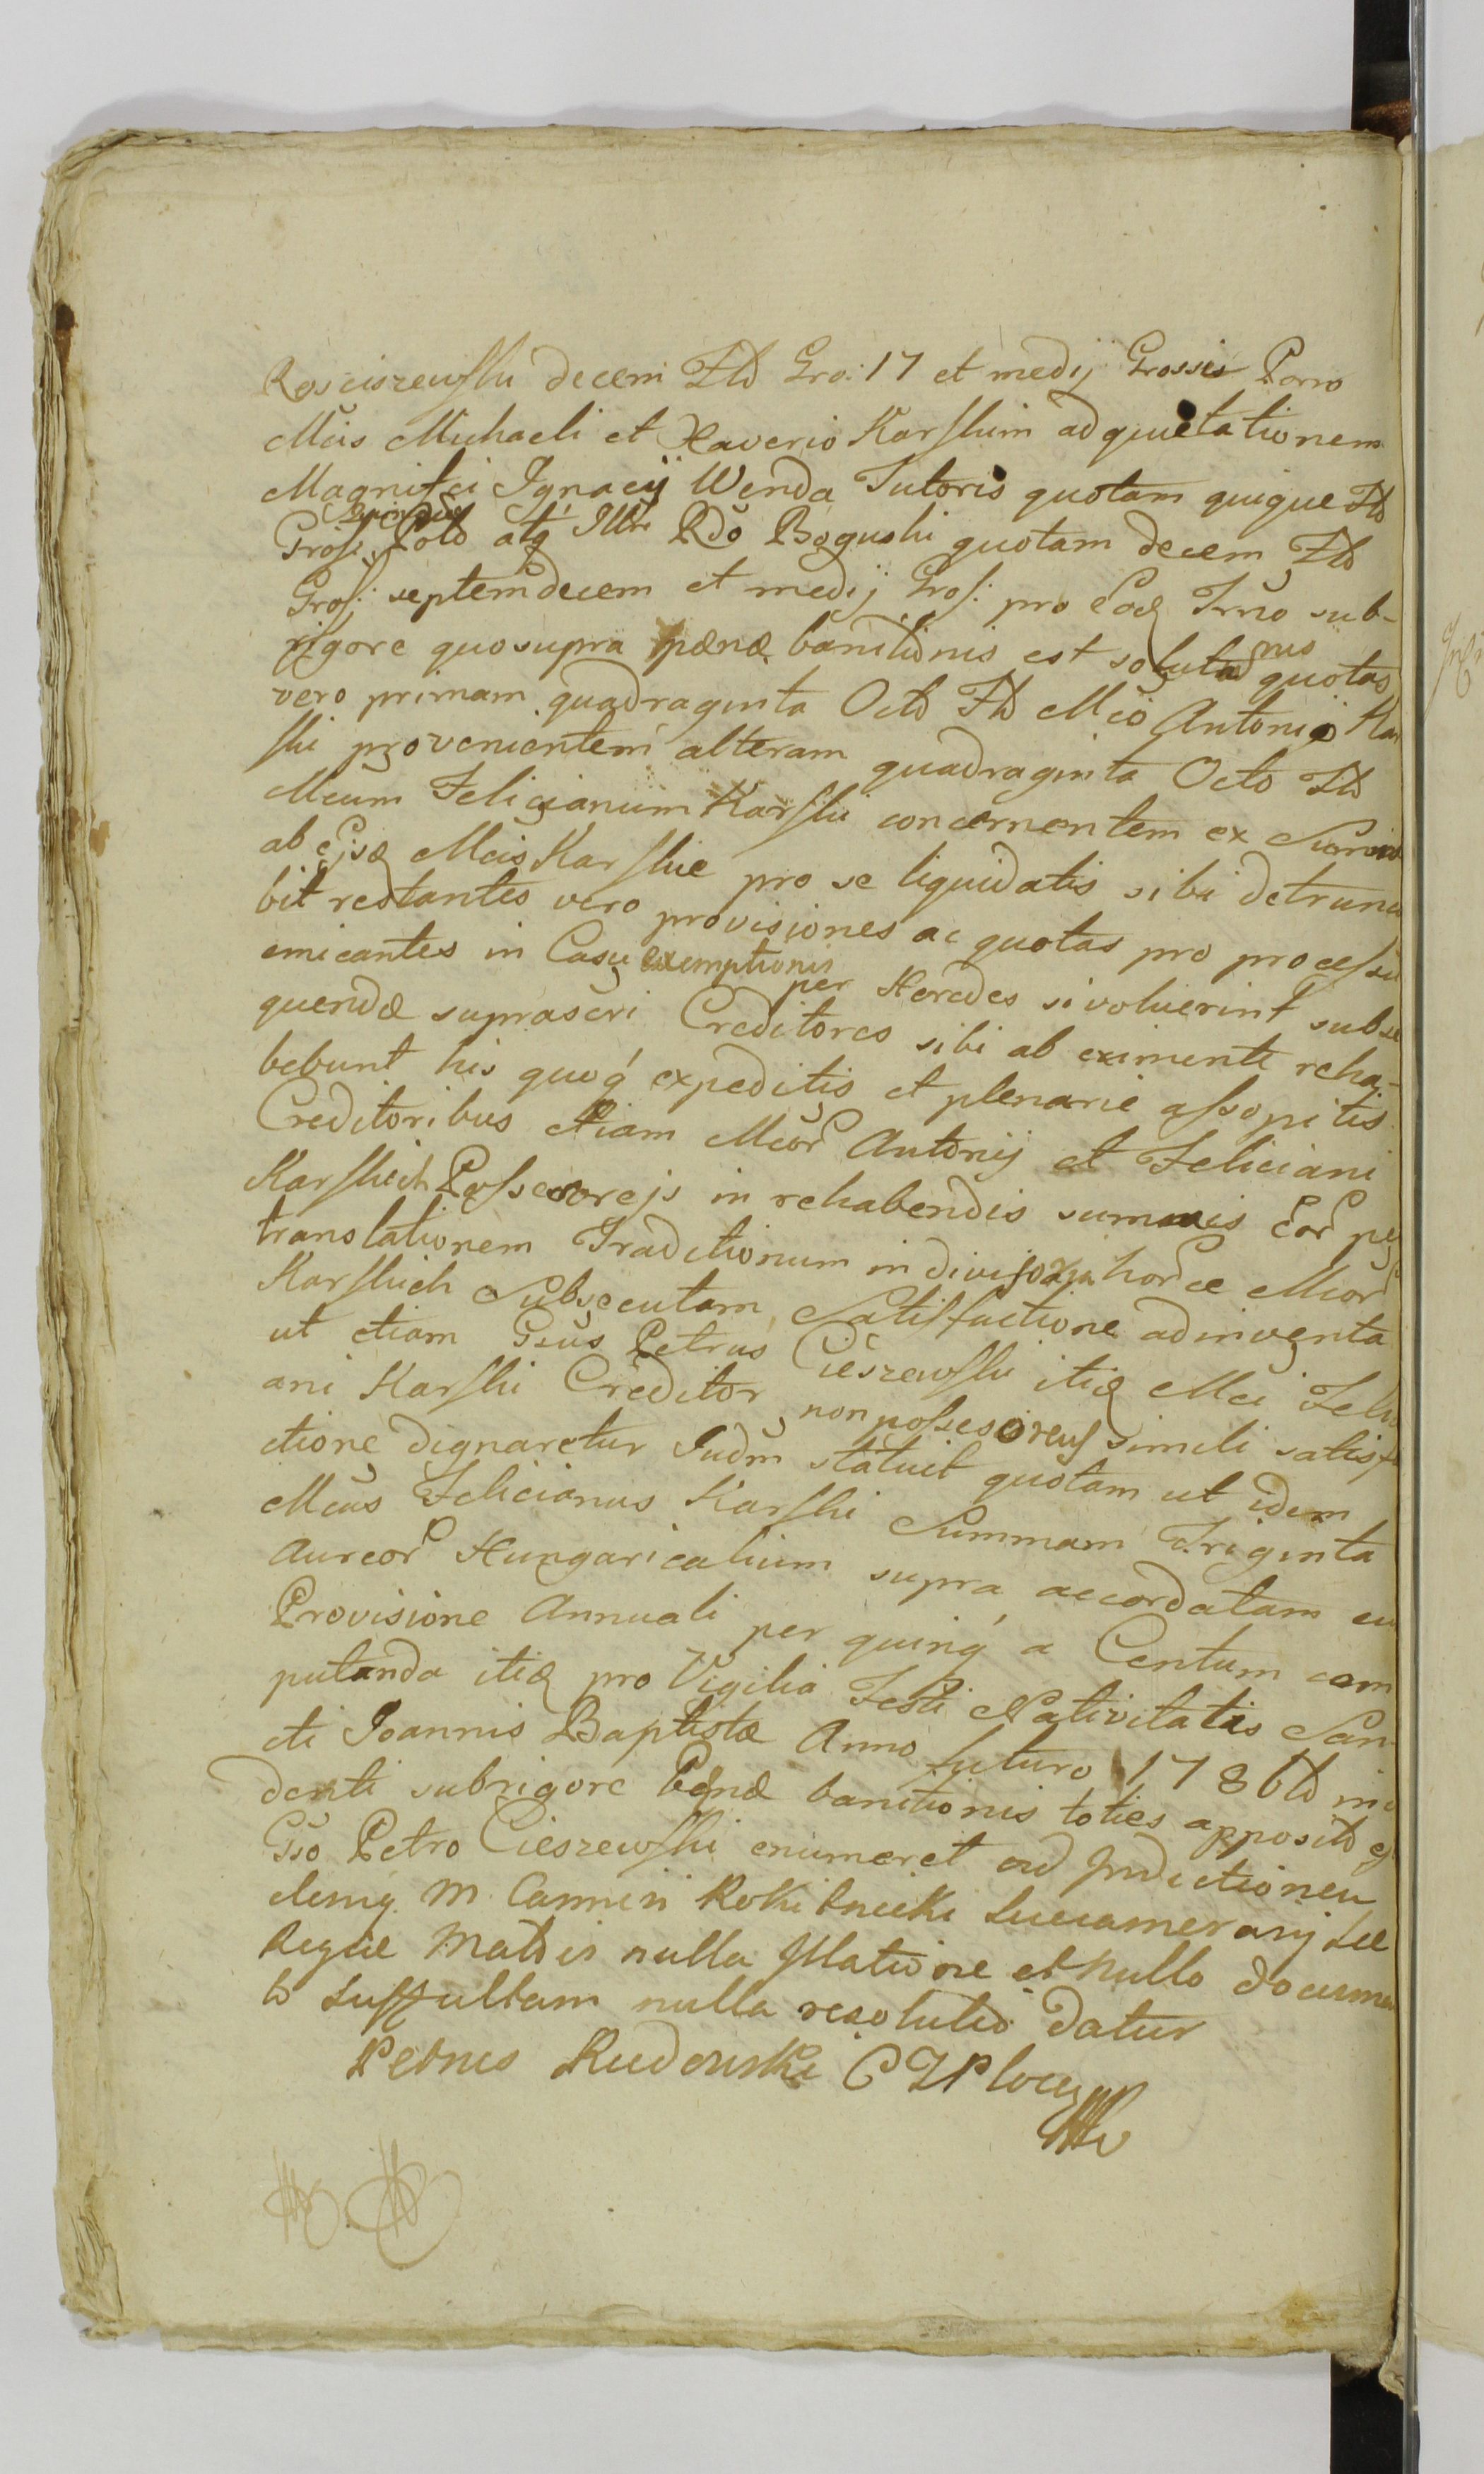 Rosciszewski decem Fld Gro: 17 et medij Grossis Porro
Mcis Michaeli et Xaverio Karskim ad quietationem
Magnifici Ignacij Wenda Tutoris quotam quique Fld
Quindecim
Gross: Pold atq́ Illri Rdo Boguski quotam decem Fld
Gross: septemdecem et medij Gros: pro Eodq Trno sub-
rigore quosupra pænæ banitionis est
nus
quotas
vero primam quadraginta Octo Fld Mco Antonio Kar
ski provenientem alteram quadraginta Octo Fld
Mcum Felicianum Karski concernentem ex
ab Mcis Karskie pro se liquidatis sibi detrunca
bit restantes vero provisiones ac quotas pro processu
emicantes in Casu exemptionis
per Heredes si voluerint subse
quendæ suprascri Creditores sibi ab eximente reha-
bebunt his quoq́ expeditis et plenarie assopitis
Creditoribus etiam Mcor Antonij et Feliciani
Karskich Possessorejs in rehabendis summis Eor per
translationem Traditionum in horce Mcor
Karskich Subsecutam Satisfactione adinventa
ut etiam Gsus Petrus Cieszewski itiq Mci Felici
ani Karski Creditor non simili satisfa
ctione dignaretur Judm statuit quotam ut idem
Mcus Felicianus Karski Summam Triginta
Aureor Hungaricalium supra accordatam cu
Provisione Annuali per quinq́ a Centum com
putanda itiq pro Vigilia Festi Nativitatis San
cti Joannis Baptistæ Anno futuro 1786to inci
denti subrigore Penæ banitionis toties apposito
Gso Petro Cieszewski enumeret ad Indictionem
M. Rokitnicki Succamerarij Sac
Regiæ Mattis nulla Illatione et nullo documen
to suffultam nulla resolutio datur
Petrus Rudowski